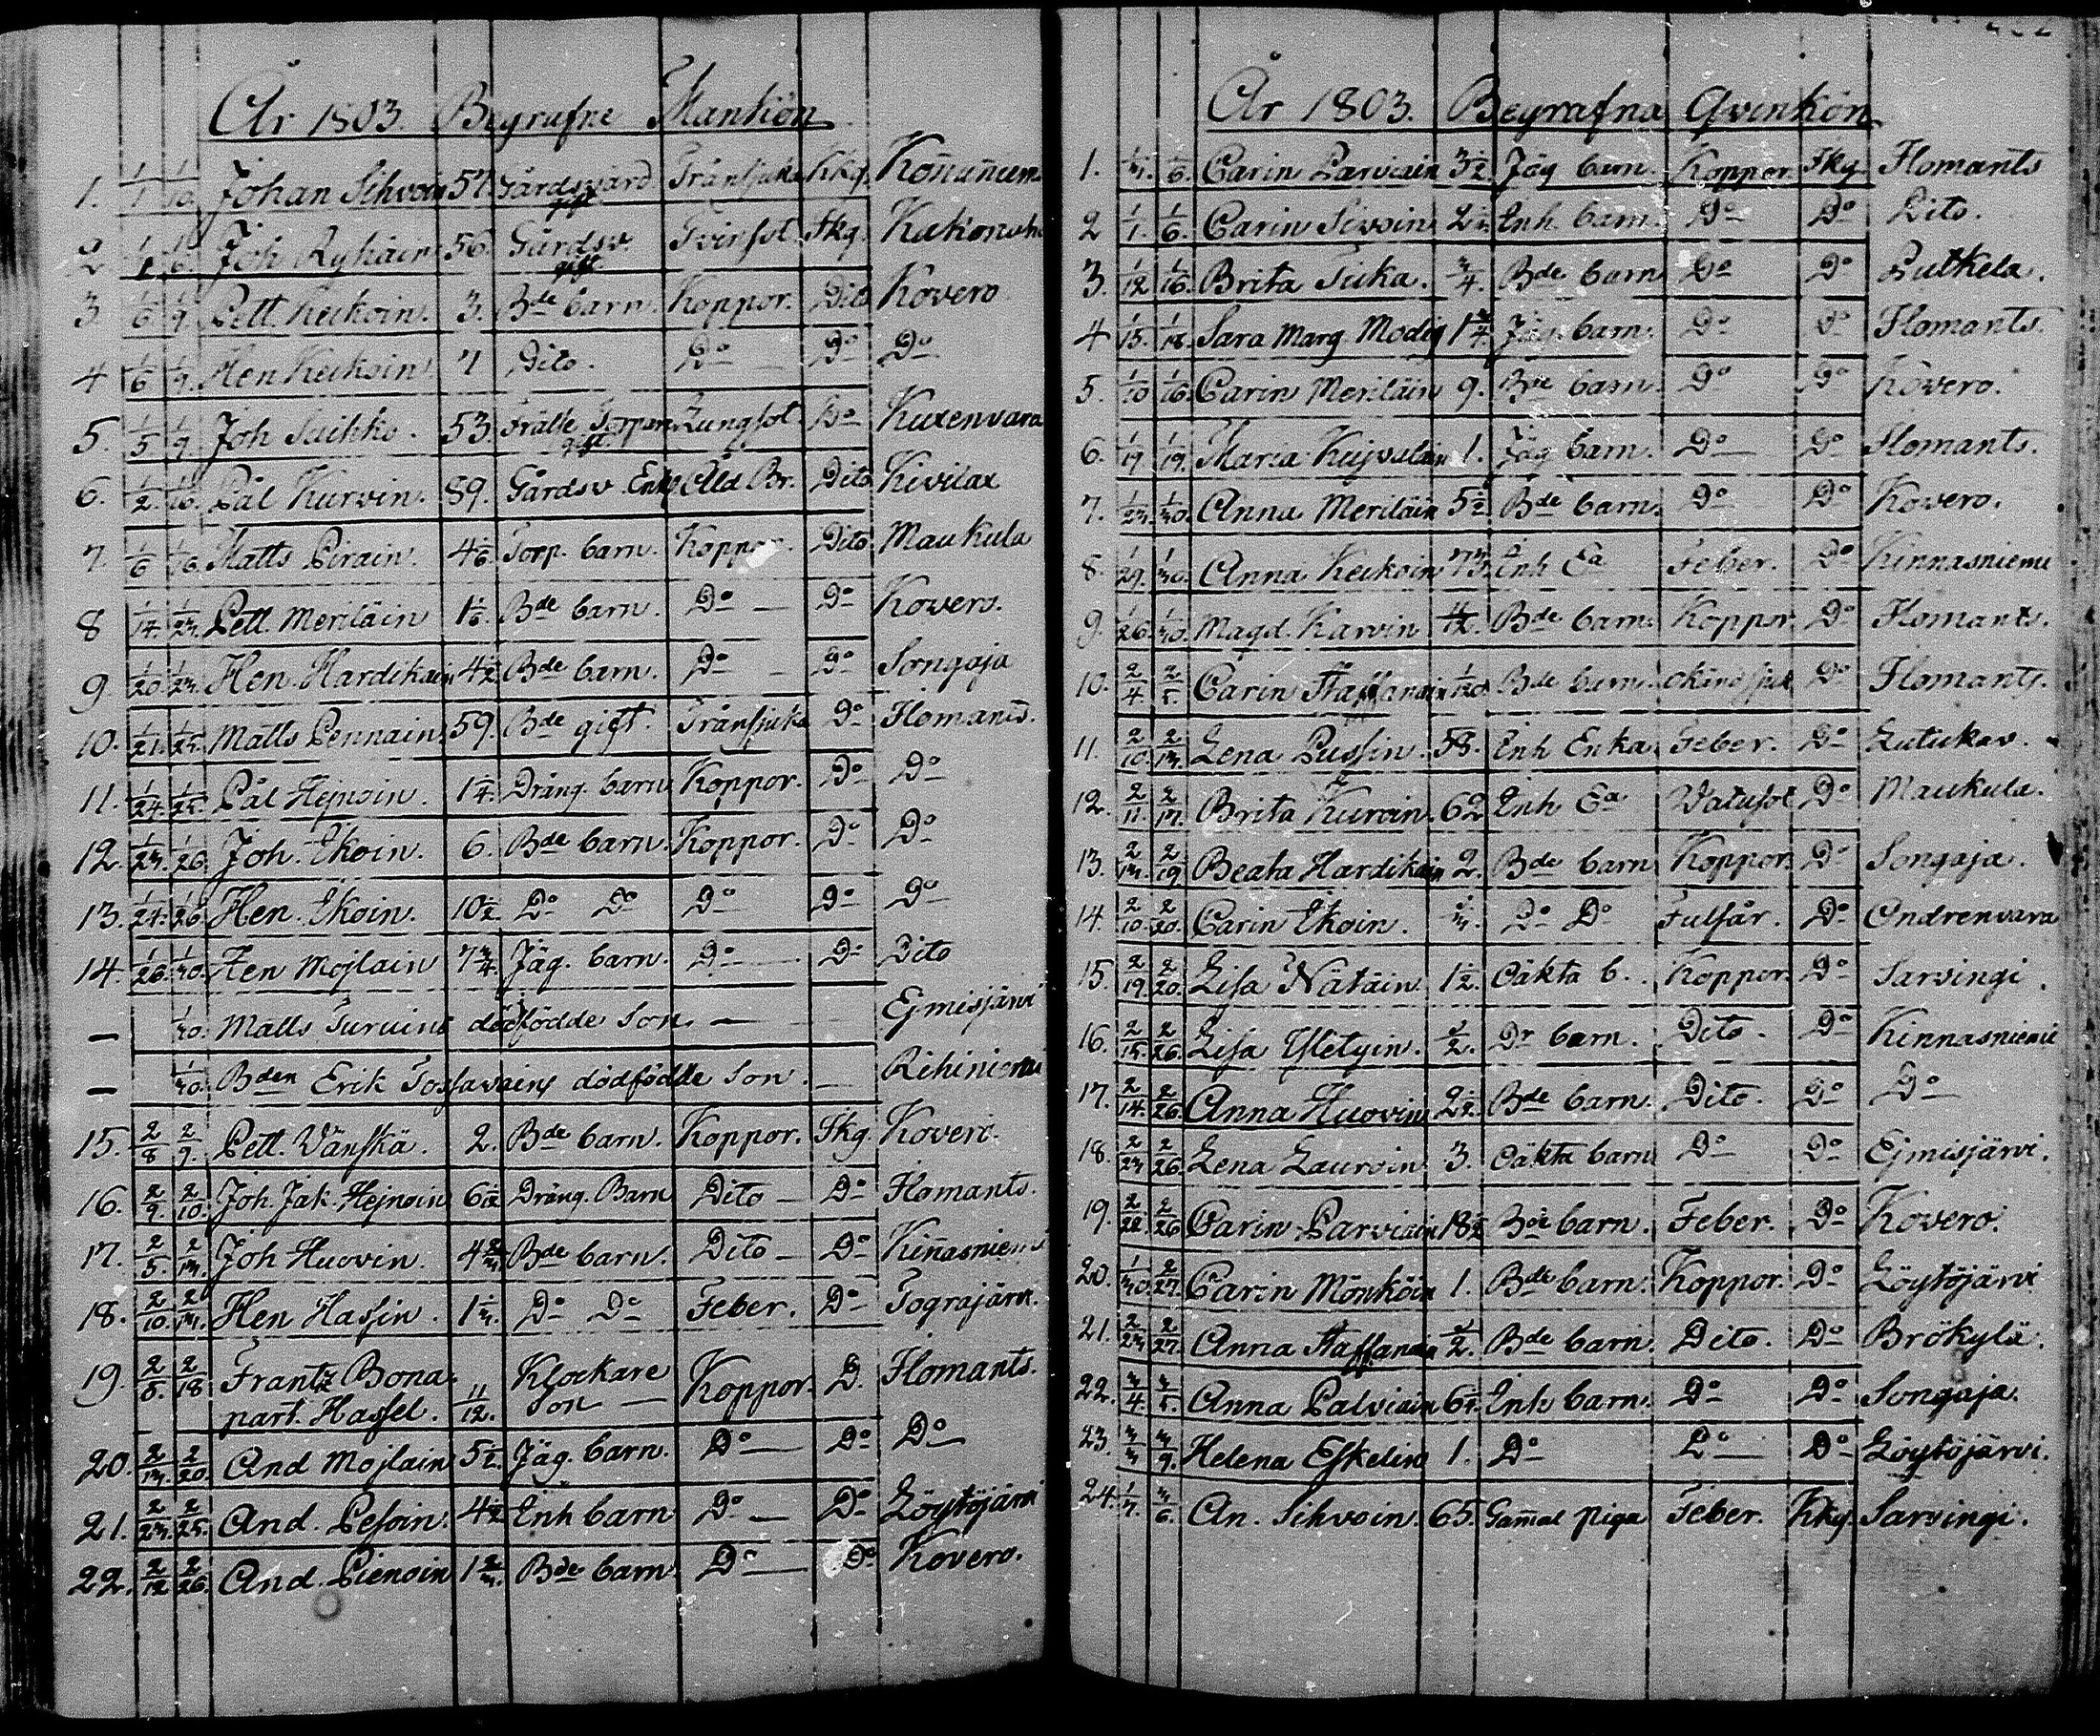 År 1803. Begrafne Mankiön
1. 1/1 1/10. Johan Sihvoin 57 Gårdsvärd gift Trånsjuka Kkg. Koñuñum
2 1/1 1/6. Joh Ryhäin 56. Gårdsv gift Tvinsot. Skg.
3. 1/6 1/9. Pett. Keckoin. 3. Bde barn. Koppor. Dito Kovero
4 1/6 1/9. Hen Keckoin. 7 Dito. Do Do Do
5. 1/5 1/9. Joh Saikko. 53. Frälse Torpare gift Lungsot. Do Kuxenvara
6. 1/2. 1/16. Pål Kurvin. 89. Gårdsv. Enkl Åld Br. Dito Kivilax
7. 1/6 1/16. Matts Pirain. 4 1/6. Torp. barn. Koppor. Dito. Maukula
8 1/14. 1/23. Pett. Meriläin 1 1/6. Bde barn. Do Do Kovero.
9 1/20. 1/23. Hen. Hardikain 4 1/2 Bde barn. Do Do Songaja
10. 1/21. 1/25. Matts Pennain. 59. Bde gift. Trånsjuka Do Ilomants.
11. 1/24. 1/25. Pål Hejnoin. 1 1/4. Dräng. barn Koppor. Do Do
12. 1/23. 1/26. Joh. Ikoin. 6. Bde barn. Koppor. Do Do
13. 1/24. 1/26. Hen. Ikoin. 10 1/2. Do Do Do Do Do
14. 1/26. 1/30. Hen Mojlain 7 3/4. Jäg. barn. Do Do Dito
— 1/30. Matts Turuins dödfödde Son — Ejmisjärvi
— 1/30. Bden Erik Tossavains dödfödde Son. — Rihiniemi
15. 2/8 2/9. Pett. Vänskä. 2. Bde barn. Koppor. Skg. Kovero.
16. 2/9. 2/10. Joh. Jak. Hejnoin 6 1/2 Dräng. Barn Dito — Do Ilomants.
17. 2/5. 2/13. Joh Huovin. 4 2/3. Bde barn. Dito — Do Kiñasniemi
18. 2/10. 2/13. Hen Hassin. 1 1/3. Do Do Feber. Do Tograjärvi.
19. 2/8. 2/18 Frantz Bona- Klockare Koppor. D. Ilomants.
part. Hassel. 11/12. Son —
20. 2/13. 2/20. And Mojlain 5 1/2. Jäg. barn. Do Do Do
21. 2/23. 2/25. And. Pesoin. 4 1/2 Enh barn Do Do Löytöjärvi
22. 2/12 2/26. And. Pienoin 1 2/3. Bde barn. Do Do Kovero.
År 1803. Begrafna Qvinkön
1. 1/3. 1/6. Carin Parviain 3 1/2. Jäg barn. Koppor. Skg. Ilomants
2 1/1. 1/6. Carin Sivoin 2 1/2. Enh. barn. Do Do Dito.
3. 1/12 1/16. Brita Tiika. 3/4. Bde barn Do Do Putkela.
4 1/15. 1/18. Sara Marg. Modig 1 3/4. Jäg. barn. Do Do Ilomants.
5. 1/10 1/16. Carin Meriläin 9. Bde barn. Do Do Kovero.
6. 1/19 1/19. Maria Kujvalain 1. Jäg barn. Do Do Ilomants.
7. 1/23. 1/30. Anna Meriläin 5 1/2 Bde barn. Do Do Kovero.
8. 1/29. 1/30. Anna Keckoin 73. Enh Ea Feber. Do Kinnasniemi
9. 1/26. 1/30. Magd. Karvin 11/12. Bde barn. Koppor Do Ilomants.
10. 2/4. 2/5. Carin Staffanain Bde barn. Do Ilomants.
11. 2/10. 2/13. Lena Pussin. 58. Enh Enka Feber. Do Lutukav.
12. 2/11. 2/17. Brita Kurvin. 62 Enh Ea Vatusot Do Maukula.
13. 2/13. 2/19. Beata Hardikain 2. Bde barn Koppor. Do Songaja.
14. 2/10. 2/20. Carin Ikoin. Do Do Fulsår. Do Ondrenvara
15. 2/19. 2/20. Lisa Nätäin. 1 1/2. Oäkta b. Koppor. Do Sarvingi.
16. 2/15. 2/26. Lisa Ysletyin. 1/2. Dr barn. Dito. Do Kinnasniemi
17. 2/14. 2/26. Anna Huovin 2 1/2. Bde barn. Dito. Do Do
18. 2/23 2/26. Lena Lauroin 3. Oäkta barn Do Do Ejmisjärvi.
19. 2/22. 2/26 Carin Parviain 18 1/2 Bde barn. Feber. Do Kovero.
20. 1/30. 2/27. Carin Mönköin 1. Bde barn. Koppor. Do Löytöjärvi
21. 2/23 2/27. Anna Staffanain 1/2. Bde barn Dito. Do Brökylä.
22. 3/4. 3/5. Anna Palviain 6 1/2. Enh barn. Do Do Songaja.
23. 3/3 3/9. Helena Eskelin 1. Do Do Do Löytöjärvi.
24. 1/7. 3/6. An. Sihvoin. 65. Gam̄al piga Feber. Kkg. Sarvingi.